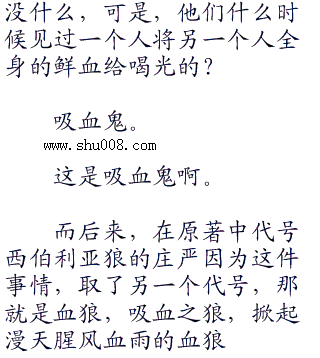 没什么，可是，他们什么时
候见过一个人将另一个人全
身的鲜血给喝光的？
吸血鬼。
www.shu008.com
这是吸血鬼啊。
而后来，在原著中代号
西伯利亚狼的庄严因为这件
事情，取了另一个代号，那
就是血狼，吸血之狼，掀起
漫天腥风血雨的血狼